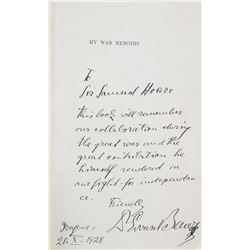 MY WAR MEMOIRS
To
Sir Samuel Hoare
this book will remember
our collaboration during
the great war and the
great contribution he
himself rendered in
our fight for independen
ce.
Friendly
Dr Edvard Beneš
Prague,
28. X. 1928